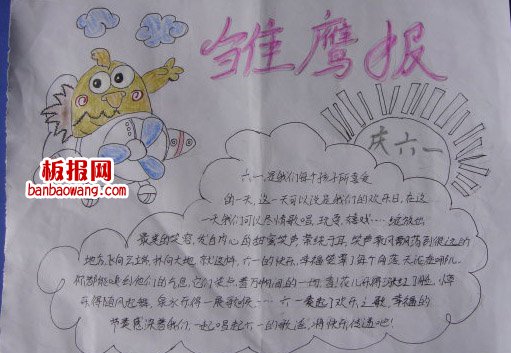 雏鹰报
庆六一
板报网
banbaowang.com
六一,是我们每个孩子所喜爱
的一天,这一天可以说是我们的欢乐日,在这
一天我们可以尽情歌唱,玩耍,嬉戏……绽放出
最美的笑容,发自内心的甜蜜笑声萦绕于耳,笑声乘风飘荡到很远的
地方飞向五湖,扑向大地,就这样,六一的快乐,幸福笼罩了每个角落,无论在哪儿
你都能嗅到他们的气息,它们使万物间的一切,喜花儿乐得涨红了脸,小草
乐得随风起舞,泉水乐得一展歌喉……六一奏起了欢乐之歌,幸福的
节奏感染着我们,一起唱起六一的歌谣,将快乐传递吧!